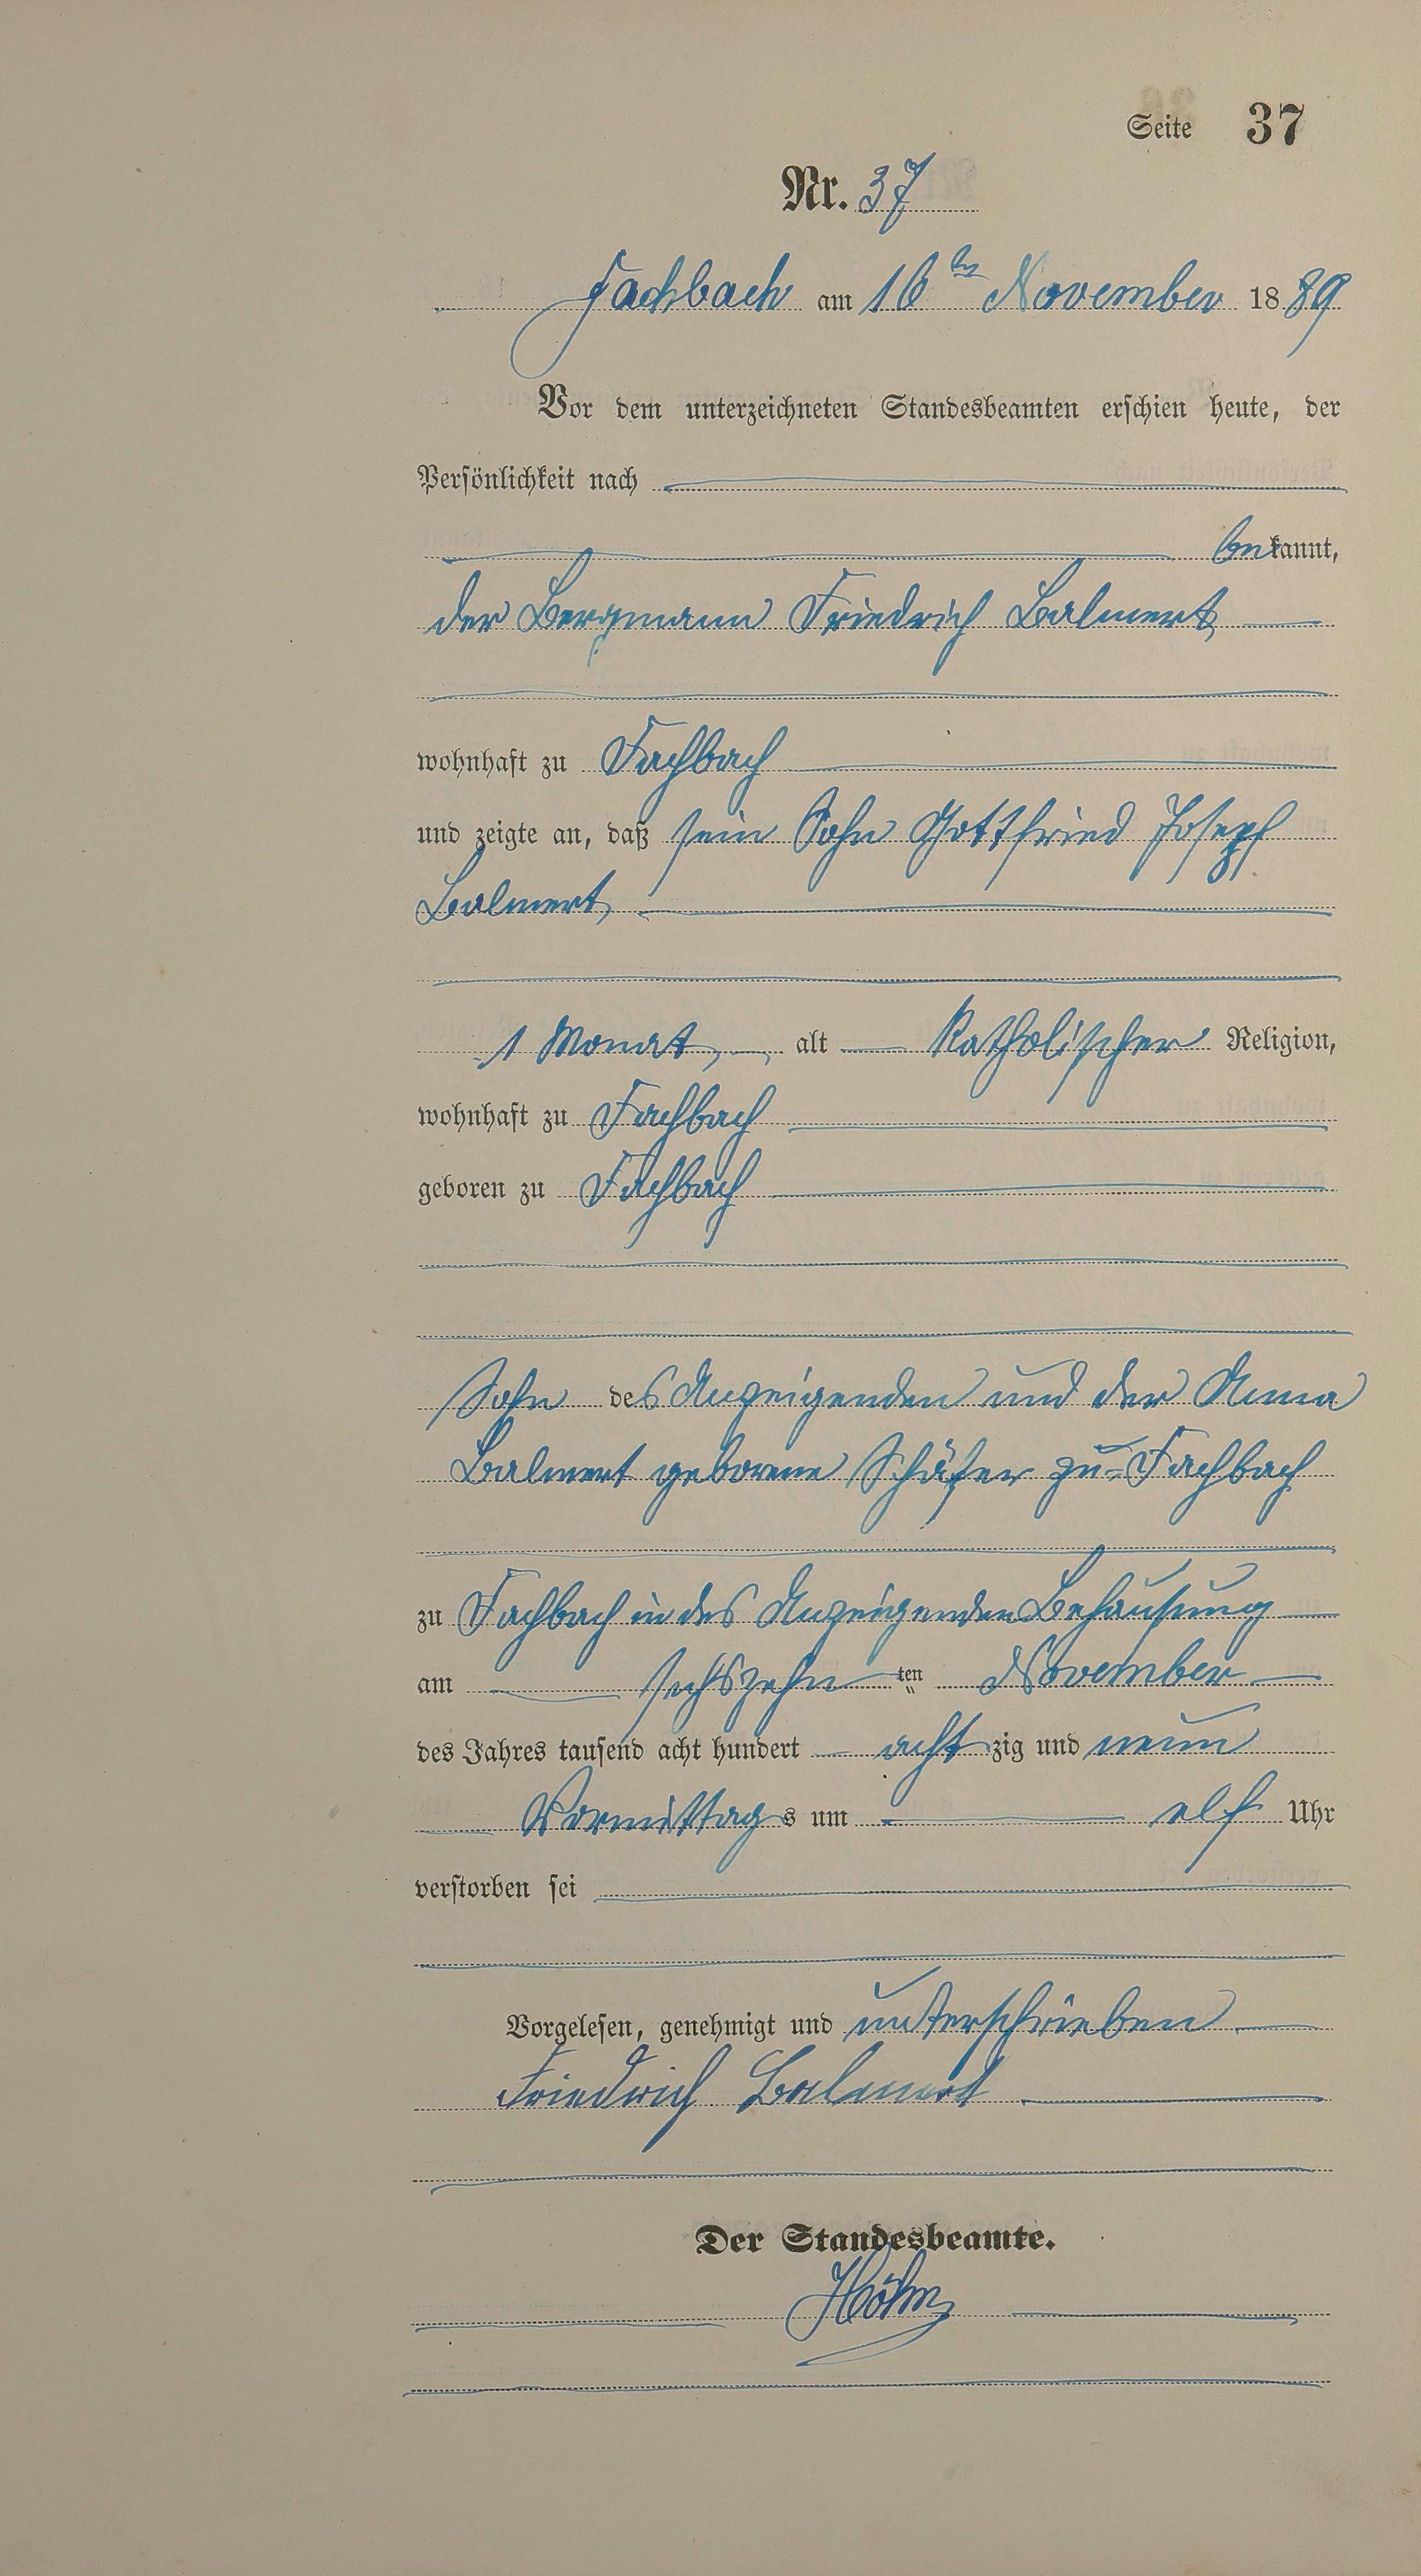 Seite 37
Nr. 37
Fachbach am 16ten November 1889
Vor dem unterzeichneten Standesbeamten erschien heute, der
Persönlichkeit nach
bekannt,
der Bergmann Friedrich Balmert
wohnhaft zu Fachbach
und zeigte an, daß sein Sohn Gottfried Joseph
Balmert,
1 Monat, alt katholischer Religion,
wohnhaft zu Fachbach
geboren zu Fachbach
Sohn des Anzeigenden und der Anna
Balmert geborene Schäfer zu Fachbach
zu Fachbach in des Anzeigenden Behausung
am sechszehnten November
des Jahres tausend acht hundert achtzig und neun
Vormittags um elf Uhr
verstorben sei
Vorgelesen, genehmigt und unterschrieben
Friedrich Balmert
Der Standesbeamte.
Höhn